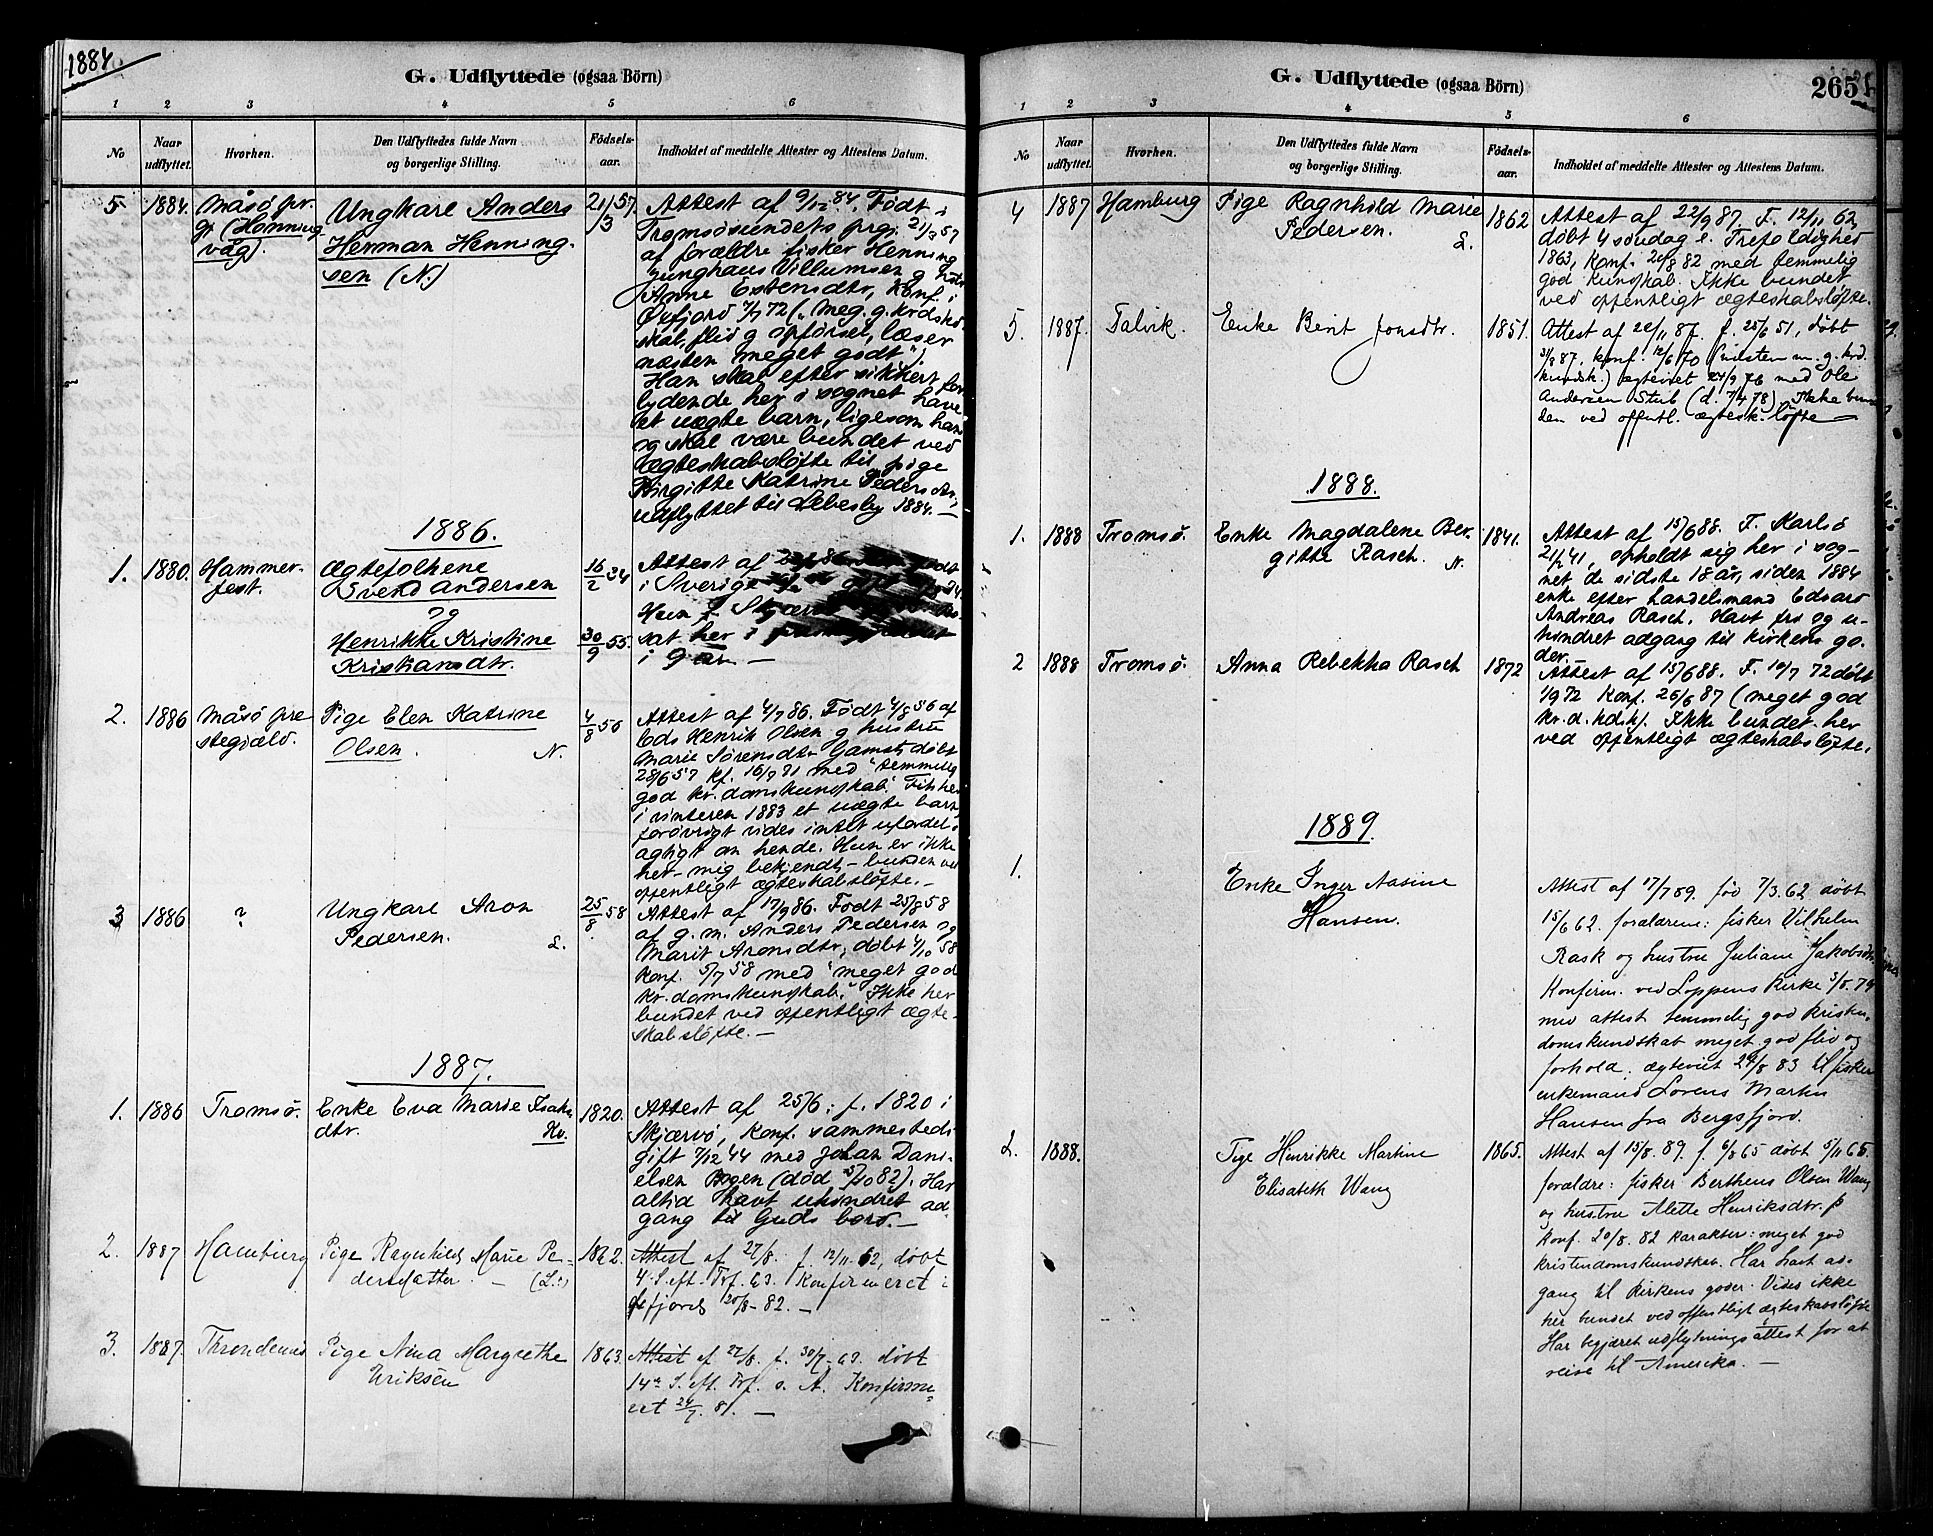 1884
G. Udflyttede (ogsaa Börn)
1 2 3 4 5 6
No
Naar udflyttet.
Hvorhen.
Den Udflyttedes fulde Navn og borgerlige Stilling.
Födsels-aar.
Indholdet af meddelte Attester og Attestens Datum.
5 1884. Måsø pr.
gj. (Honning
våg).
Ungkarl Anders
Herman Henning-
sen (N.)
21/3 57.
Attest af 9/12 84. Født i
Tromsøsundets prgj. 21/3 57
af forældre fisker Henning
Junghaus Villumsen og hstr
Anne Estensdtr, Konf. i
Øxfjord 7/7 72 („Meg. g. krdsk.
skab, flid g opförsel, læser
næsten meget godt").
Han skal efter sikkert for-
lydende her i sognet have
et uægte barn, ligesom han
og skal være bundet ved
ægteskabsløfte til pige
Birgitte Katrine Pedersdtr,
udflyttet til Lebesby 1884. —
1886.
1. 1880. Hammer-
fest.
Ægtefolkene
Svend Andersen
og
Henrikke Kristine
Kristiansdtr.
16/2 34
30/9 55.
Attest af
i Sverige
Hun f. Skjærvø
sat her i
i 9 år —
2. 1886 Måsø pre
stegjæld.
Pige Elen Katrine
Olsen. N.
4/8 56
Attest af 4/7 86. Født 4/8 56 af
Eds Henrik Olsen g hustru
Marie Sørensdtr Gamst, døbt
28/6 57 kf. 16/7 71 med "temmelig
god kr.domskundskab." Fik her
i vinteren 1883 et uægte barn,
forøvrigt vides intet ufordel-
agtigt om hende. Hun er ikke
her - mig bekjendt - bunden ved
offentligt ægteskabsløfte. —
3 1886 ?
Ungkarl Aron
Pedersen. L.
25/8 58
Attest af 17/9 86. Født 25/8 58
af g.m. Anders Pedersen og
Marit Aronsdtr, døbt 4/10 58
konf. 5/7 58 med "meget god
kr.domskundskab." Ikke her
bundet ved offentligt ægte-
skabsløfte. —
1887.
1. 1886 Tromsø.
Enke Eva Marie Isaks
dtr. Kv.
1820.
Attest af 25/6; f. 1820 i
Skjærvø, konf. sammesteds
gift 7/12 44 med Johan Dani-
elsen Bogen (død 5/10 82). Har
altid havt uhindret ad-
gang til Guds bord. —
2. 1887 Hamburg
Pige Ragnhild Marie Pe-
dersdatter. — (L.)
1862.
Attest af 27/8. f. 12/11 62, døbt
4. S. eft. Trf. 63. Konfirmeret i
Øxfjord 20/8 - 82. —
3. 1887. Throndenes
Pige Nina Margrethe
Eriksen
1863.
Attest af 27/8. f. 30/7 - 63. døbt
14de S. eft. Trf. s. A. Konfirme-
ret 24/7. 81. —
G. Udflyttede (ogsaa Börn)
265
1 2 3 4 5 6
No
Naar udflyttet.
Hvorhen.
Den Udflyttedes fulde Navn og borgerlige Stilling.
Födsels-aar.
Indholdet af meddelte Attester og Attestens Datum.
4 1887 Hamburg
Pige Ragnhild Marie
Pedersen. L.
1862
Attest af 22/9 87. F. 12/11 62,
døbt 4 søndag e. Trefoldighed
1863, Konf. 20/8 82 med temmelig
god kundskab. Ikke bundet
ved offentligt ægteskabsløfte.
5. 1887. Talvik.
Enke Berit Jonsdtr.
1851.
Attest af 20/11 87. f. 25/6 51, døbt
3/8 87, konf. 12/6 70 (næsten m. g. krd.
kundsk.) ægteviet 24/9 76 med Ole
Andersen Stub (d. 7/4 78) Ikke bun
den ved offentl. ægtesk.løfte —
1888.
1. 1888 Tromsø.
Enke Magdalene Ber-
gitte Rasch. N.
1841.
Attest af 15/6 88. F. Karlsø
21/2 41, opholdt sig her i sog-
net de sidste 18 år, siden 1884
enke efter handelsmand Edvard
Andreas Rasch. Havt fri og u-
hindret adgang til kirkens go-
der.
2 1888 Tromsø.
Anna Rebekka Rasch
1872
Attest af 15/6 88. F. 10/7 72 døbt
1/9 72 Konf. 26/6 87 (meget god
kr.d.kdsk). Ikke bundet her
ved offentligt ægteskabsløfte.
1889.
1.
Enke Inger Nasine
Hansen.
Attest af 17/7 89. fød 7/3. 62 døbt
15/6 62. forældrene: fisker Vilhelm
Rask og hustru Juliane Jakobsdtr.
Konfirm. ved Loppens Kirke 3/8. 79
med attest temmelig god kristen-
domskundskab meget god flid og
forhold. ægteviet 24/8 83 til fisker
enkemand Lorens Martin
Hansen fra Bergsfjord.
2. 1888.
Pige Henrikke Martine
Elisabeth Wang
1865.
Attest af 15/8. 89. f. 6/8 65 døbt 5/11 65.
forældre: fisker Berthens Olsen Wang
og hustru Alette Henriksdtr.
konf. 20/8. 82 karakter: meget god
kristendomskundskab. Har havt ad-
gang til Kirkens goder. Vides ikke
her bundet ved offentligt ægteskabsløfte
Har begjæret udflytningsattest for at
reise til Amerika. —